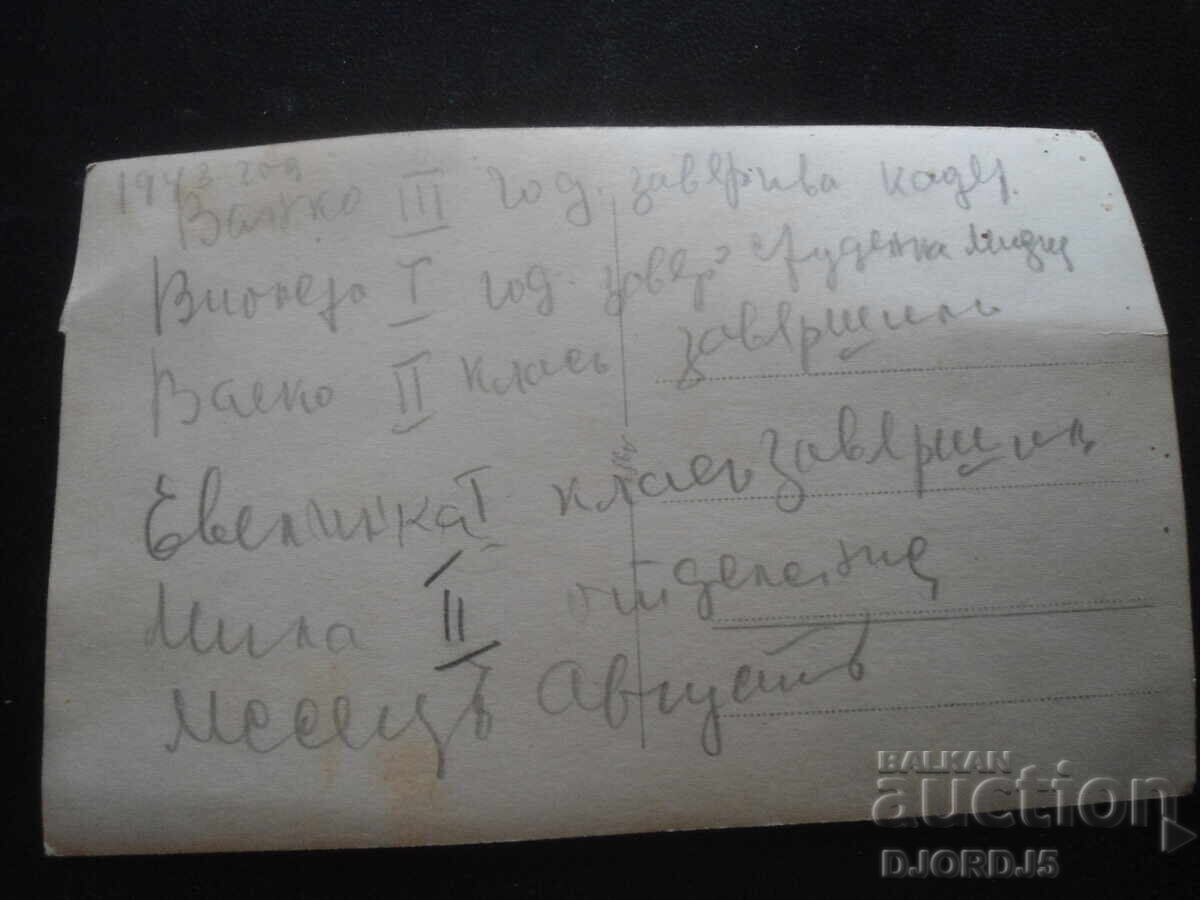 1943 год
Валко III год. завършва кадет.
Виолета I год. завър студентка
Васко II класъ завършилъ
Евелинка I класъ завършил
Мила II отделение
Месецъ Августъ
BALKAN
auction
DJORDJ5